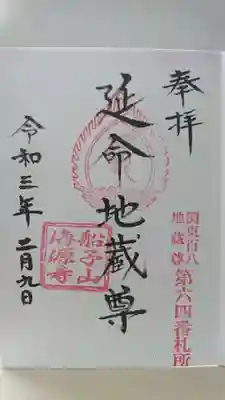 奉拝
関東百八
地蔵尊
第六四番札所
延命地蔵尊
船子山
清源寺
令和三年二月九日